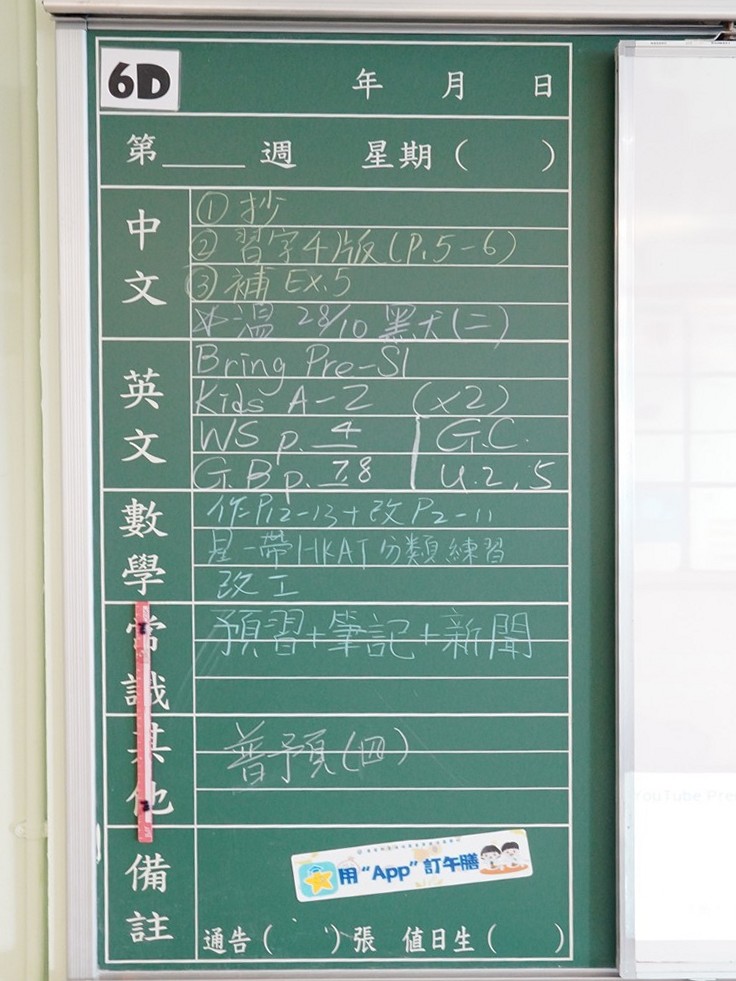 6D
年 月 日
第 週 星期( )
中文
① 抄
② 習字4版(P.5-6)
③ 補 Ex.5
温 28/10 黑犬(二)
英文
Bring Pre-S1
Kids A-Z (x2)
WS p. 4 | G.C.
G.B p. 78 | U.2,5
數學
作P12-13+改P2-11
星一帶HKAT分類練習
改工
常識
預習+筆記+新聞
其他
普預(四)
備註
用“App”訂午膳
通告( )張 值日生( )
YouTube Pre